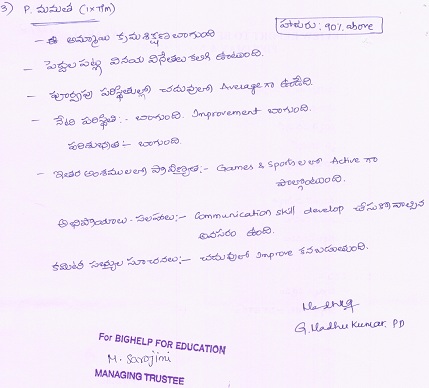 3) P. మమత (IX T/m)
హాజరు: 90% above
- ఈ అమ్మాయి క్రమశిక్షణ బాగుంది
- పెద్దల పట్ల వినయ విధేతలు కలిగి ఉంటుంది.
- పూర్వపు పరిస్థితుల్లో చదువులో Average గా ఉండేది.
- నేటి పరిస్థితి:- బాగుంది. Improvement బాగుంది.
పరిశుభ్రత:- బాగుంది.
- ఇతర అంశములలో ప్రావీణ్యత:- Games & Sports లలో Active గా
పాల్గొంటుంది.
అభిప్రాయాలు- సలహాలు:- Communication skill develop చేసుకోవాల్సిన
అవసరం ఉంది.
కమిటీ సభ్యుల సూచనలు:- చదువులో Improve కనబడుతుంది.
G. Madhu Kumar. PD
For BIGHELP FOR EDUCATION
M. Sarojini
MANAGING TRUSTEE